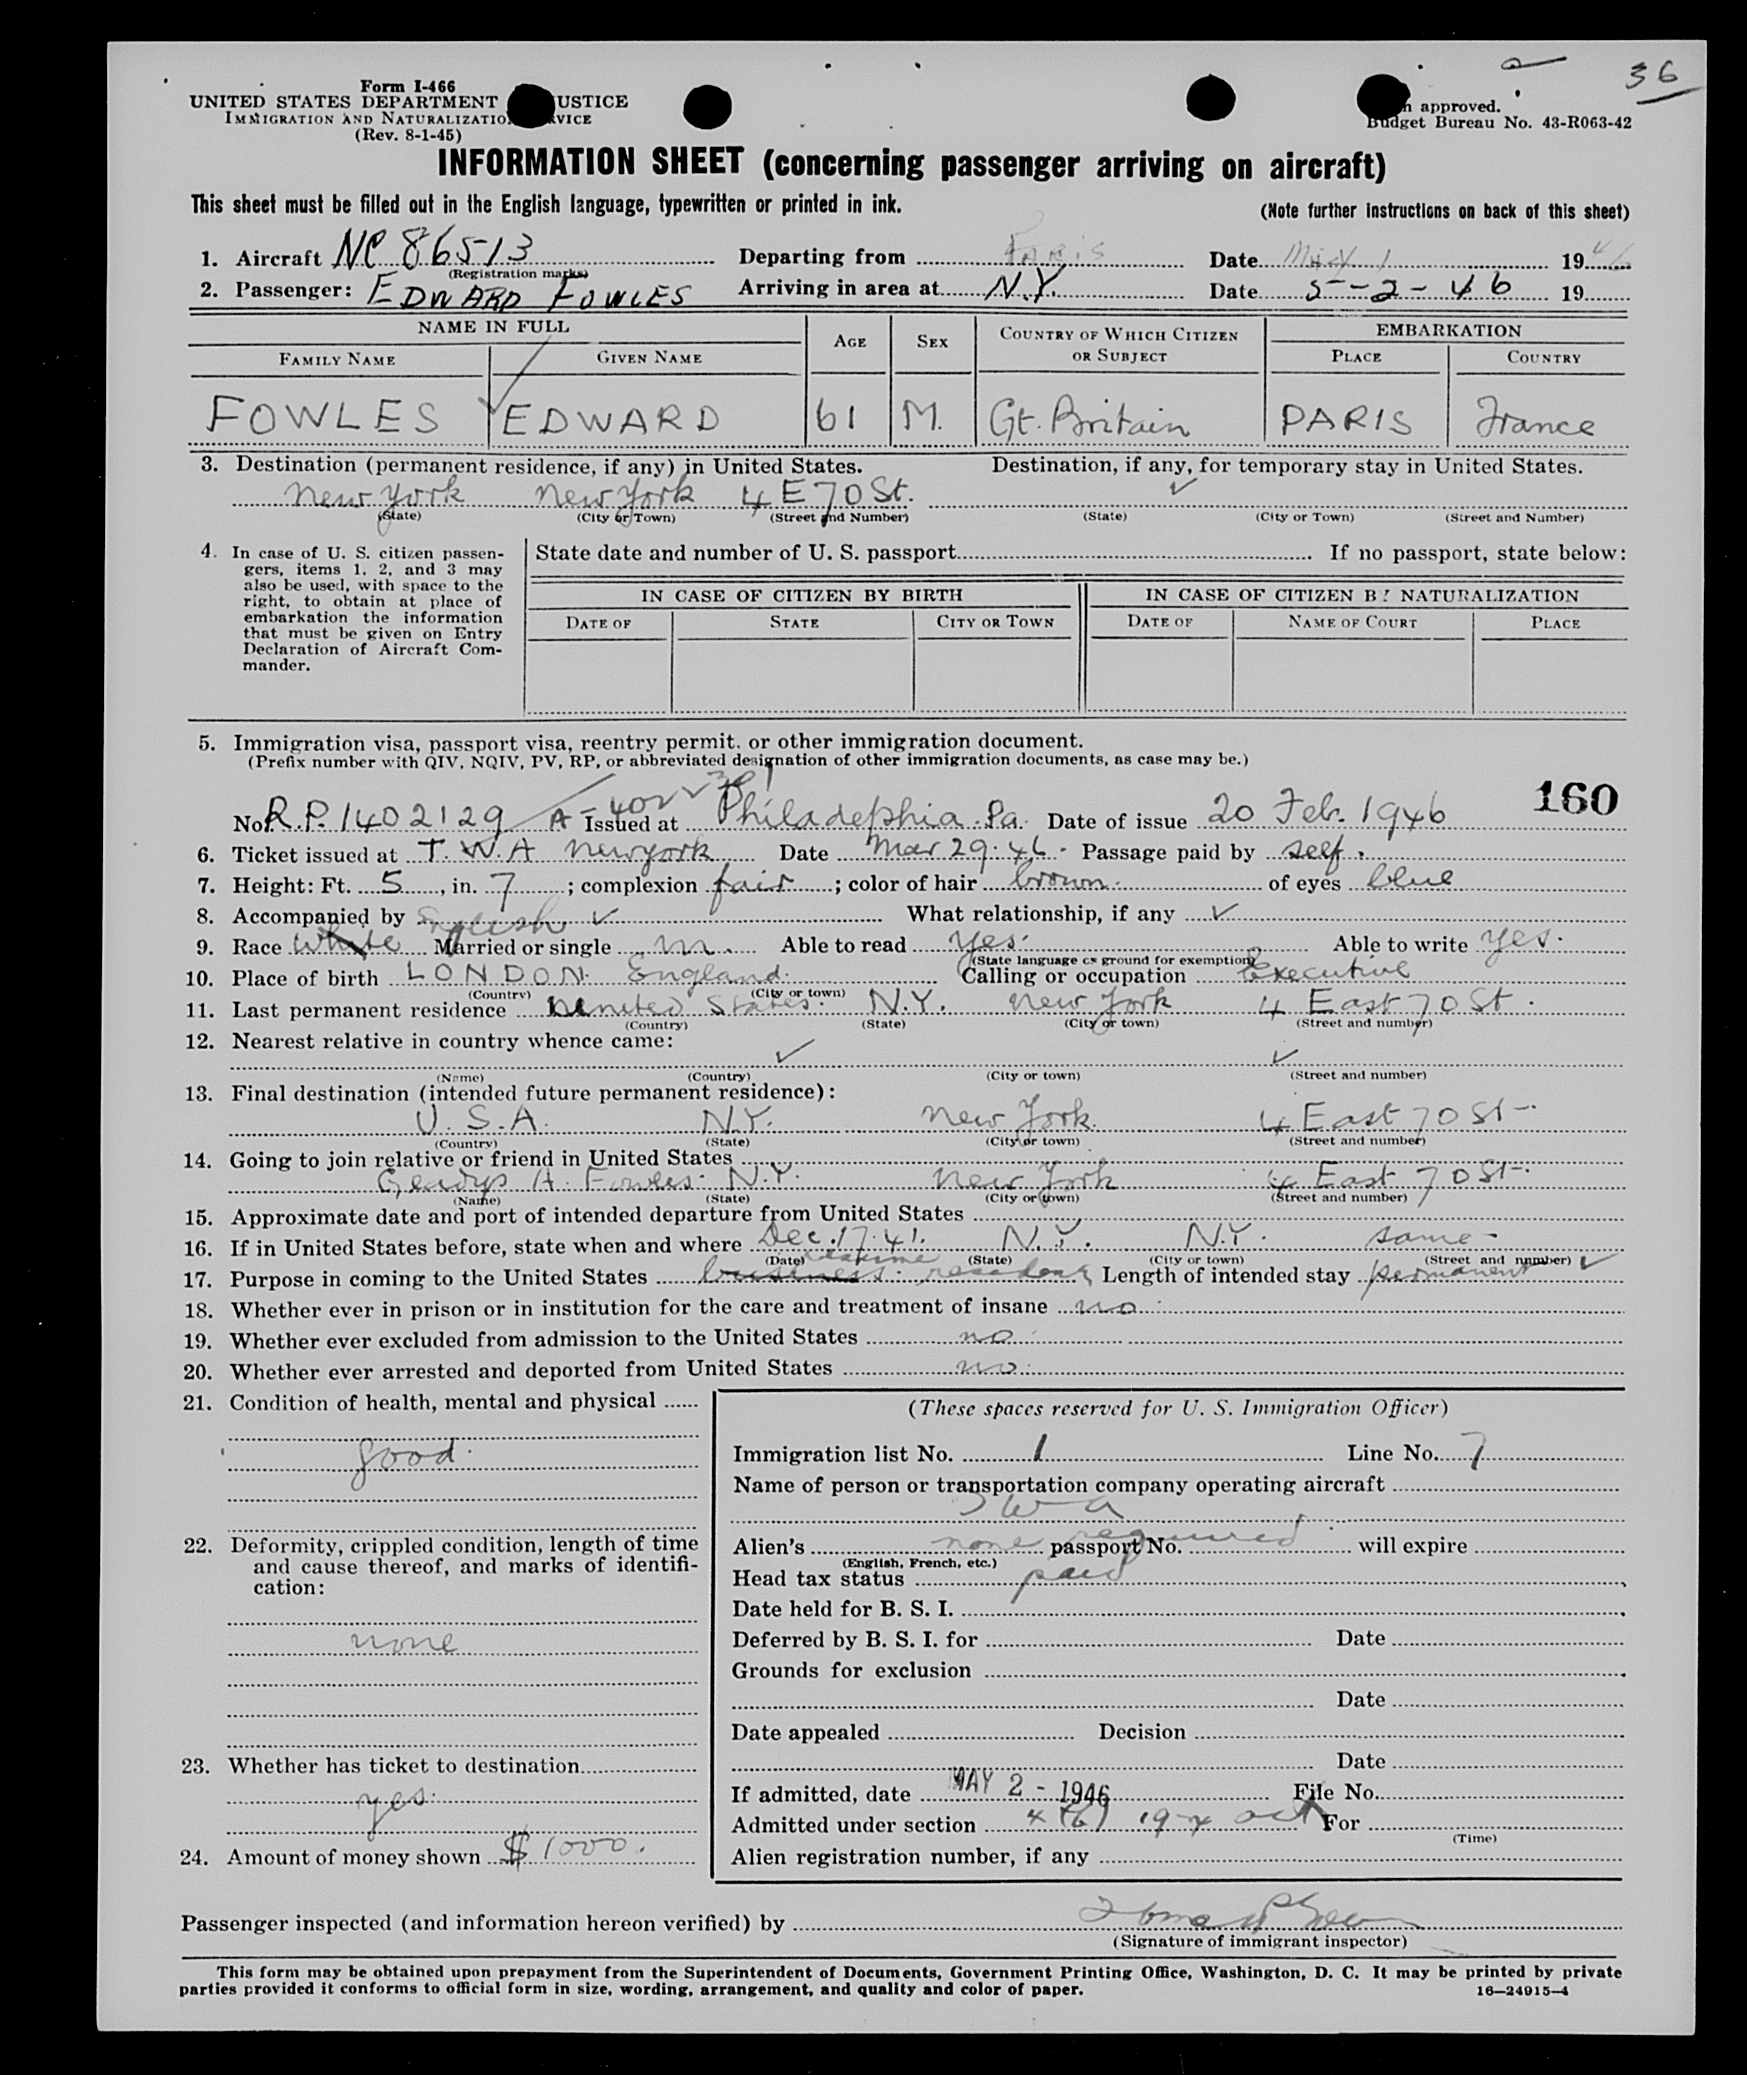 36
Form I-466
UNITED STATES DEPARTMENT USTICE
IMMIGRATION AND NATURALIZATIO VICE
(Rev. 8-1-45)
n approved.
Budget Bureau No. 43-R063-42
INFORMATION SHEET (concerning passenger arriving on aircraft)
This sheet must be filled out in the English language, typewritten or printed in ink. (Note further instructions on back of this sheet)
1. Aircraft NC 86513 Departing from Paris Date May 1 1946
(Registration marks)
2. Passenger: EDWARD FOWLES Arriving in area at N.Y. Date 5-2-46 19
NAME IN FULL AGE SEX COUNTRY OF WHICH CITIZEN OR SUBJECT EMBARKATION
FAMILY NAME GIVEN NAME PLACE COUNTRY
FOWLES EDWARD 61 M. Gt. Britain PARIS France
3. Destination (permanent residence, if any) in United States. Destination, if any, for temporary stay in United States.
New York New York 4 E 70 St. ✓
(State) (City or Town) (Street and Number) (State) (City or Town) (Street and Number)
4. In case of U. S. citizen passengers, items 1, 2, and 3 may also be used, with space to the right, to obtain at place of embarkation the information that must be given on Entry Declaration of Aircraft Commander.
State date and number of U. S. passport If no passport, state below:
IN CASE OF CITIZEN BY BIRTH IN CASE OF CITIZEN BY NATURALIZATION
DATE OF STATE CITY OR TOWN DATE OF NAME OF COURT PLACE
5. Immigration visa, passport visa, reentry permit, or other immigration document.
(Prefix number with QIV, NQIV, PV, RP, or abbreviated designation of other immigration documents, as case may be.)
160
No. R.P. 1402129 Issued at Philadephia. Pa. Date of issue 20 Feb. 1946
6. Ticket issued at T.W.A New york Date Mar 29. 46. Passage paid by self.
7. Height: Ft. 5, in. 7; complexion fair; color of hair brown. of eyes blue
8. Accompanied by ✓ What relationship, if any ✓
English
9. Race White Married or single m. Able to read yes. Able to write yes.
(State language or ground for exemption)
10. Place of birth LONDON. England. Calling or occupation Executive
(Country) (City or town)
11. Last permanent residence United States. N.Y. New York 4 East 70 St.
(Country) (State) (City or town) (Street and number)
12. Nearest relative in country whence came:
✓ ✓
(Name) (Country) (City or town) (Street and number)
13. Final destination (intended future permanent residence):
U.S.A. N.Y. New York. 4 East 70 St.
(Country) (State) (City or town) (Street and number)
14. Going to join relative or friend in United States
Gladys H. Fowles. N.Y. New York 4 East 70 St.
(Name) (State) (City or town) (Street and number)
15. Approximate date and port of intended departure from United States
16. If in United States before, state when and where Dec. 17. 41. N.Y. N.Y. same
(Date) (State) (City or town) (Street and number)
17. Purpose in coming to the United States business. Length of intended stay permanent ✓
18. Whether ever in prison or in institution for the care and treatment of insane no
19. Whether ever excluded from admission to the United States no
20. Whether ever arrested and deported from United States no.
21. Condition of health, mental and physical
good.
22. Deformity, crippled condition, length of time and cause thereof, and marks of identification:
none
23. Whether has ticket to destination
yes.
24. Amount of money shown $1000.
(These spaces reserved for U. S. Immigration Officer)
Immigration list No. 1 Line No. 7
Name of person or transportation company operating aircraft
TWA
Alien's none required passport No. will expire
(English, French, etc.)
Head tax status paid
Date held for B. S. I.
Deferred by B. S. I. for Date
Grounds for exclusion
Date
Date appealed Decision
Date
If admitted, date MAY 2 - 1946 File No.
Admitted under section 4 (b) 1924 act For
(Time)
Alien registration number, if any
Passenger inspected (and information hereon verified) by
(Signature of immigrant inspector)
This form may be obtained upon prepayment from the Superintendent of Documents, Government Printing Office, Washington, D. C. It may be printed by private
parties provided it conforms to official form in size, wording, arrangement, and quality and color of paper. 16—24915-4